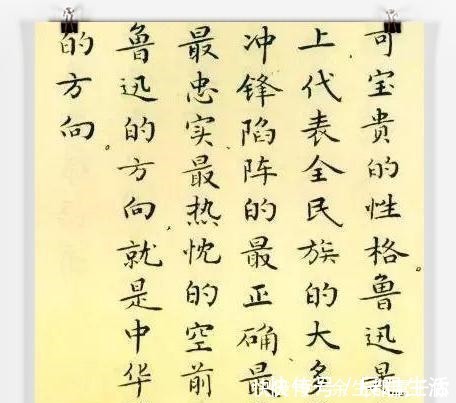 可宝贵的性格。鲁迅是
上代表全民族的大多
冲锋陷阵的最正确最
最忠实最热忱的空前
鲁迅的方向就是中华
的方向。
快传号/
生活